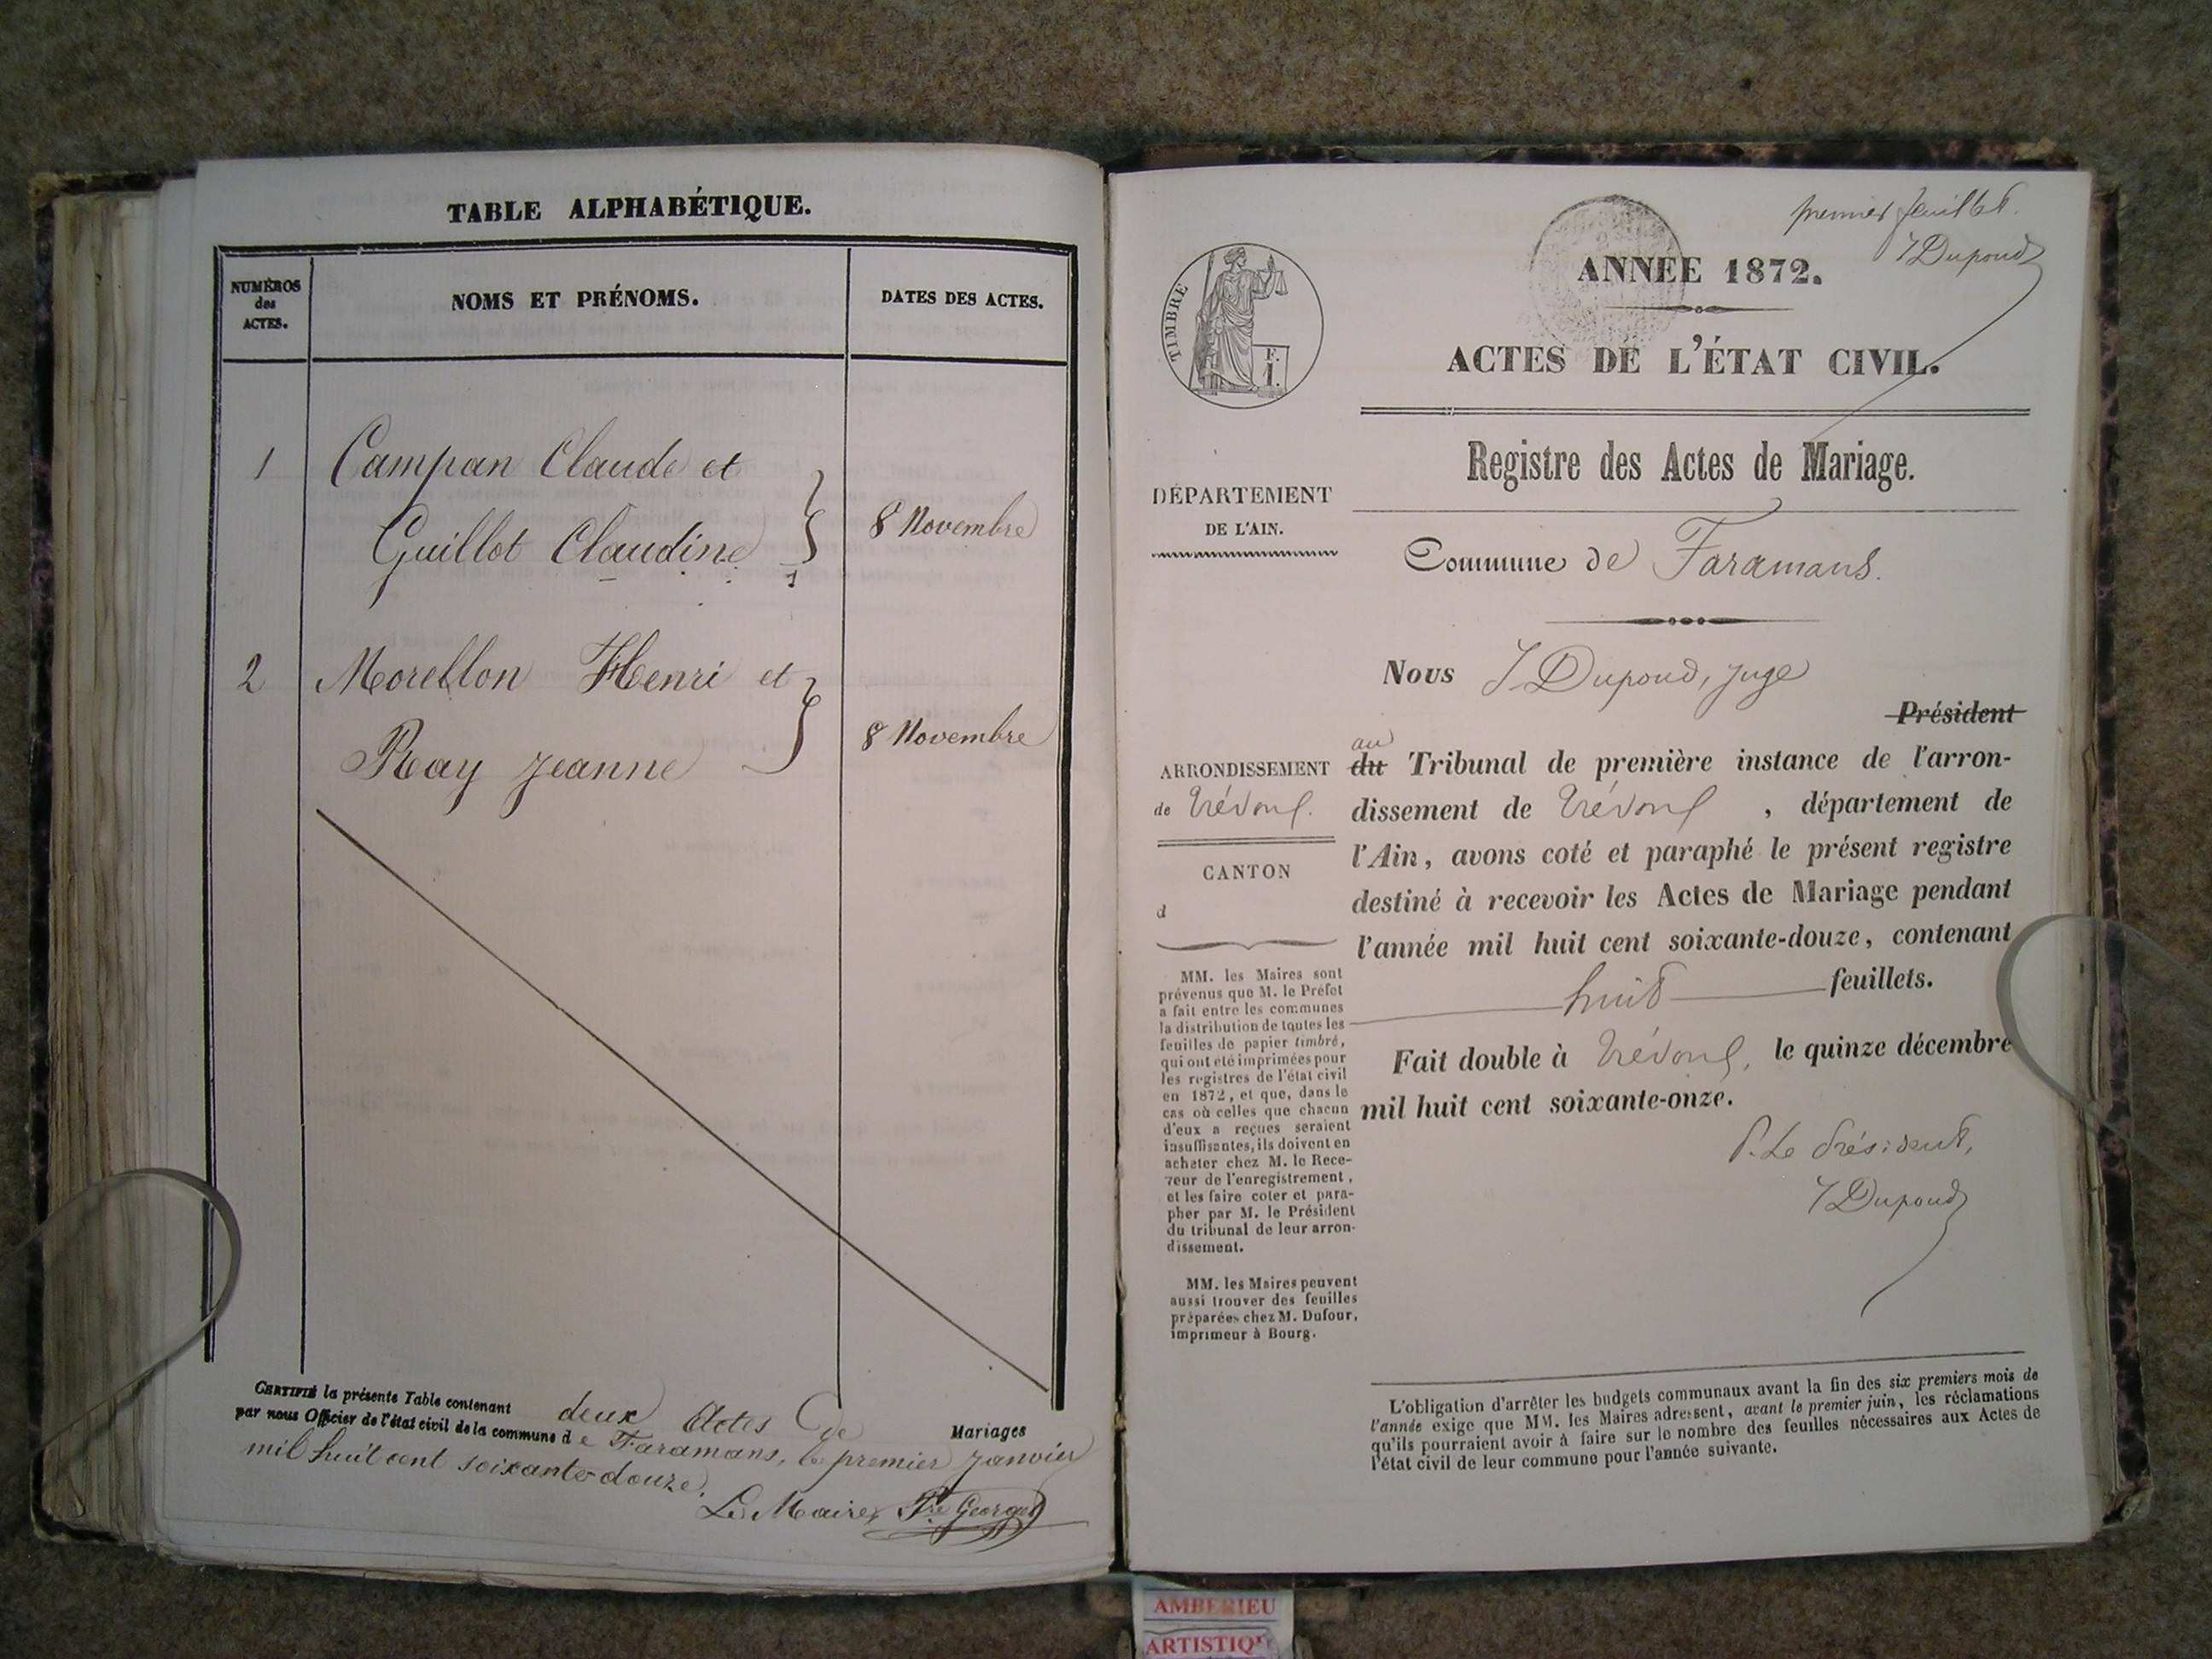 TABLE ALPHABÉTIQUE.
NUMÉROS
des
ACTES.
NOMS ET PRÉNOMS.
DATES DES ACTES.
1
Campan Claude et
Guillot Claudine
8 Novembre
2
Morellon Henri et
Ray Jeanne
8 Novembre
CERTIFIÉ la présente Table contenant deux Actes de Mariages
par nous Officier de l'état civil de la commune d e Faramans, le premier janvier
mil huit cent soixante-douze.
Le Maire, Fre Georges
premier feuillet.
J Dupond
TIMBRE
F.
1.
ANNÉE 1872.
ACTES DE L'ÉTAT CIVIL.
Registre des Actes de Mariage.
DÉPARTEMENT
DE L'AIN.
Commune de Faramans.
Nous J. Dupond, juge
Président
au
ARRONDISSEMENT
de Trévoux.
CANTON
d
du Tribunal de première instance de l'arron-
dissement de Trévoux, département de
l'Ain, avons coté et paraphé le présent registre
destiné à recevoir les Actes de Mariage pendant
l'année mil huit cent soixante-douze, contenant
huit feuillets.
Fait double à Trévoux, le quinze décembre
mil huit cent soixante-onze.
P. Le Président,
J Dupond
MM. les Maires sont
prévenus que M. le Préfet
a fait entre les communes
la distribution de toutes les
feuilles de papier timbré,
qui ont été imprimées pour
les registres de l'état civil
en 1872, et que, dans le
cas où celles que chacun
d'eux a reçues seraient
insuffisantes, ils doivent en
acheter chez M. le Rece-
veur de l'enregistrement,
et les faire coter et para-
pher par M. le Président
du tribunal de leur arron-
dissement.
MM. les Maires peuvent
aussi trouver des feuilles
préparées chez M. Dufour,
imprimeur à Bourg.
L'obligation d'arrêter les budgets communaux avant la fin des six premiers mois de
l'année exige que MM. les Maires adressent, avant le premier juin, les réclamations
qu'ils pourraient avoir à faire sur le nombre des feuilles nécessaires aux Actes de
l'état civil de leur commune pour l'année suivante.
AMBERIEU
ARTISTIQU